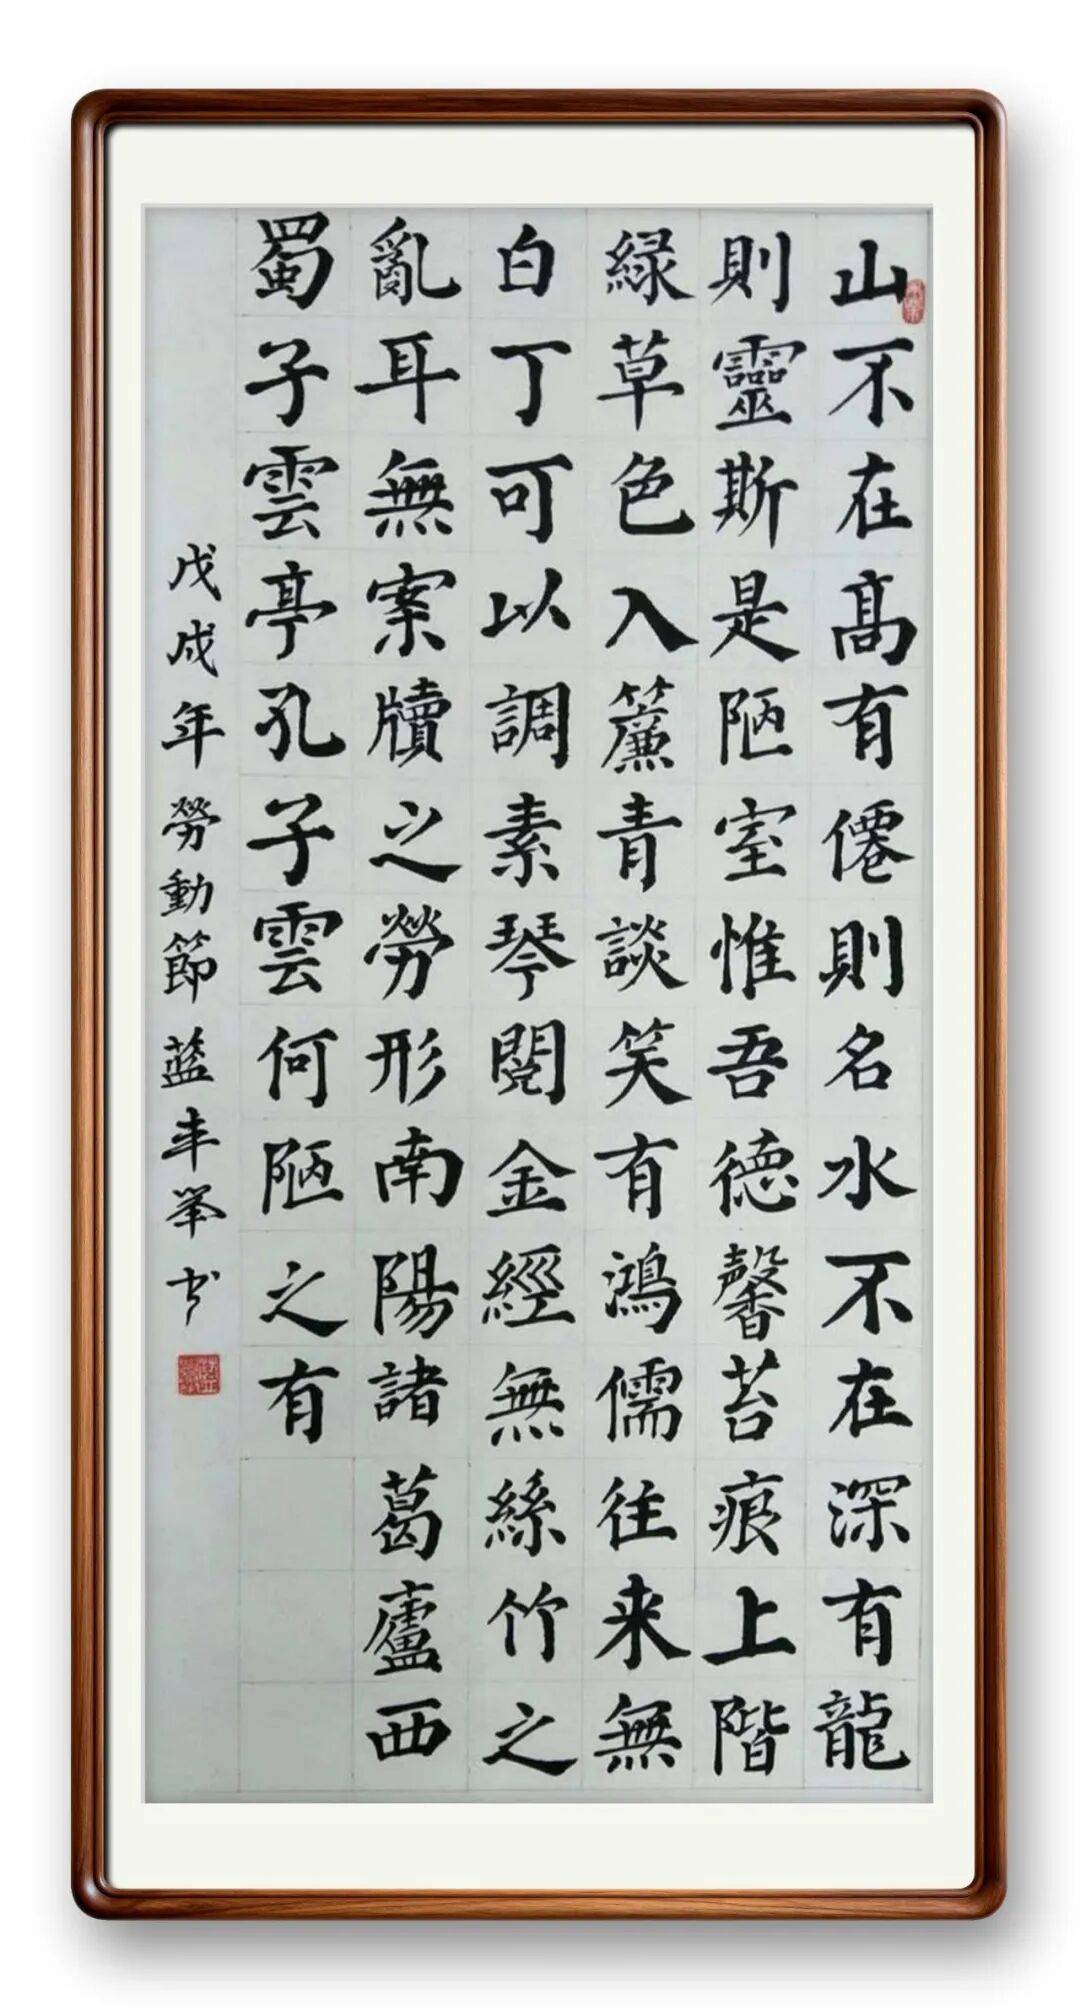 山不在高有僊則名水不在深有龍
則靈斯是陋室惟吾德馨苔痕上階
緑草色入簾青談笑有鴻儒往来無
白丁可以調素琴閱金經無絲竹之
亂耳無案牘之勞形南陽諸葛廬西
蜀子雲亭孔子雲何陋之有
戊戌年勞動節蓝丰峯书